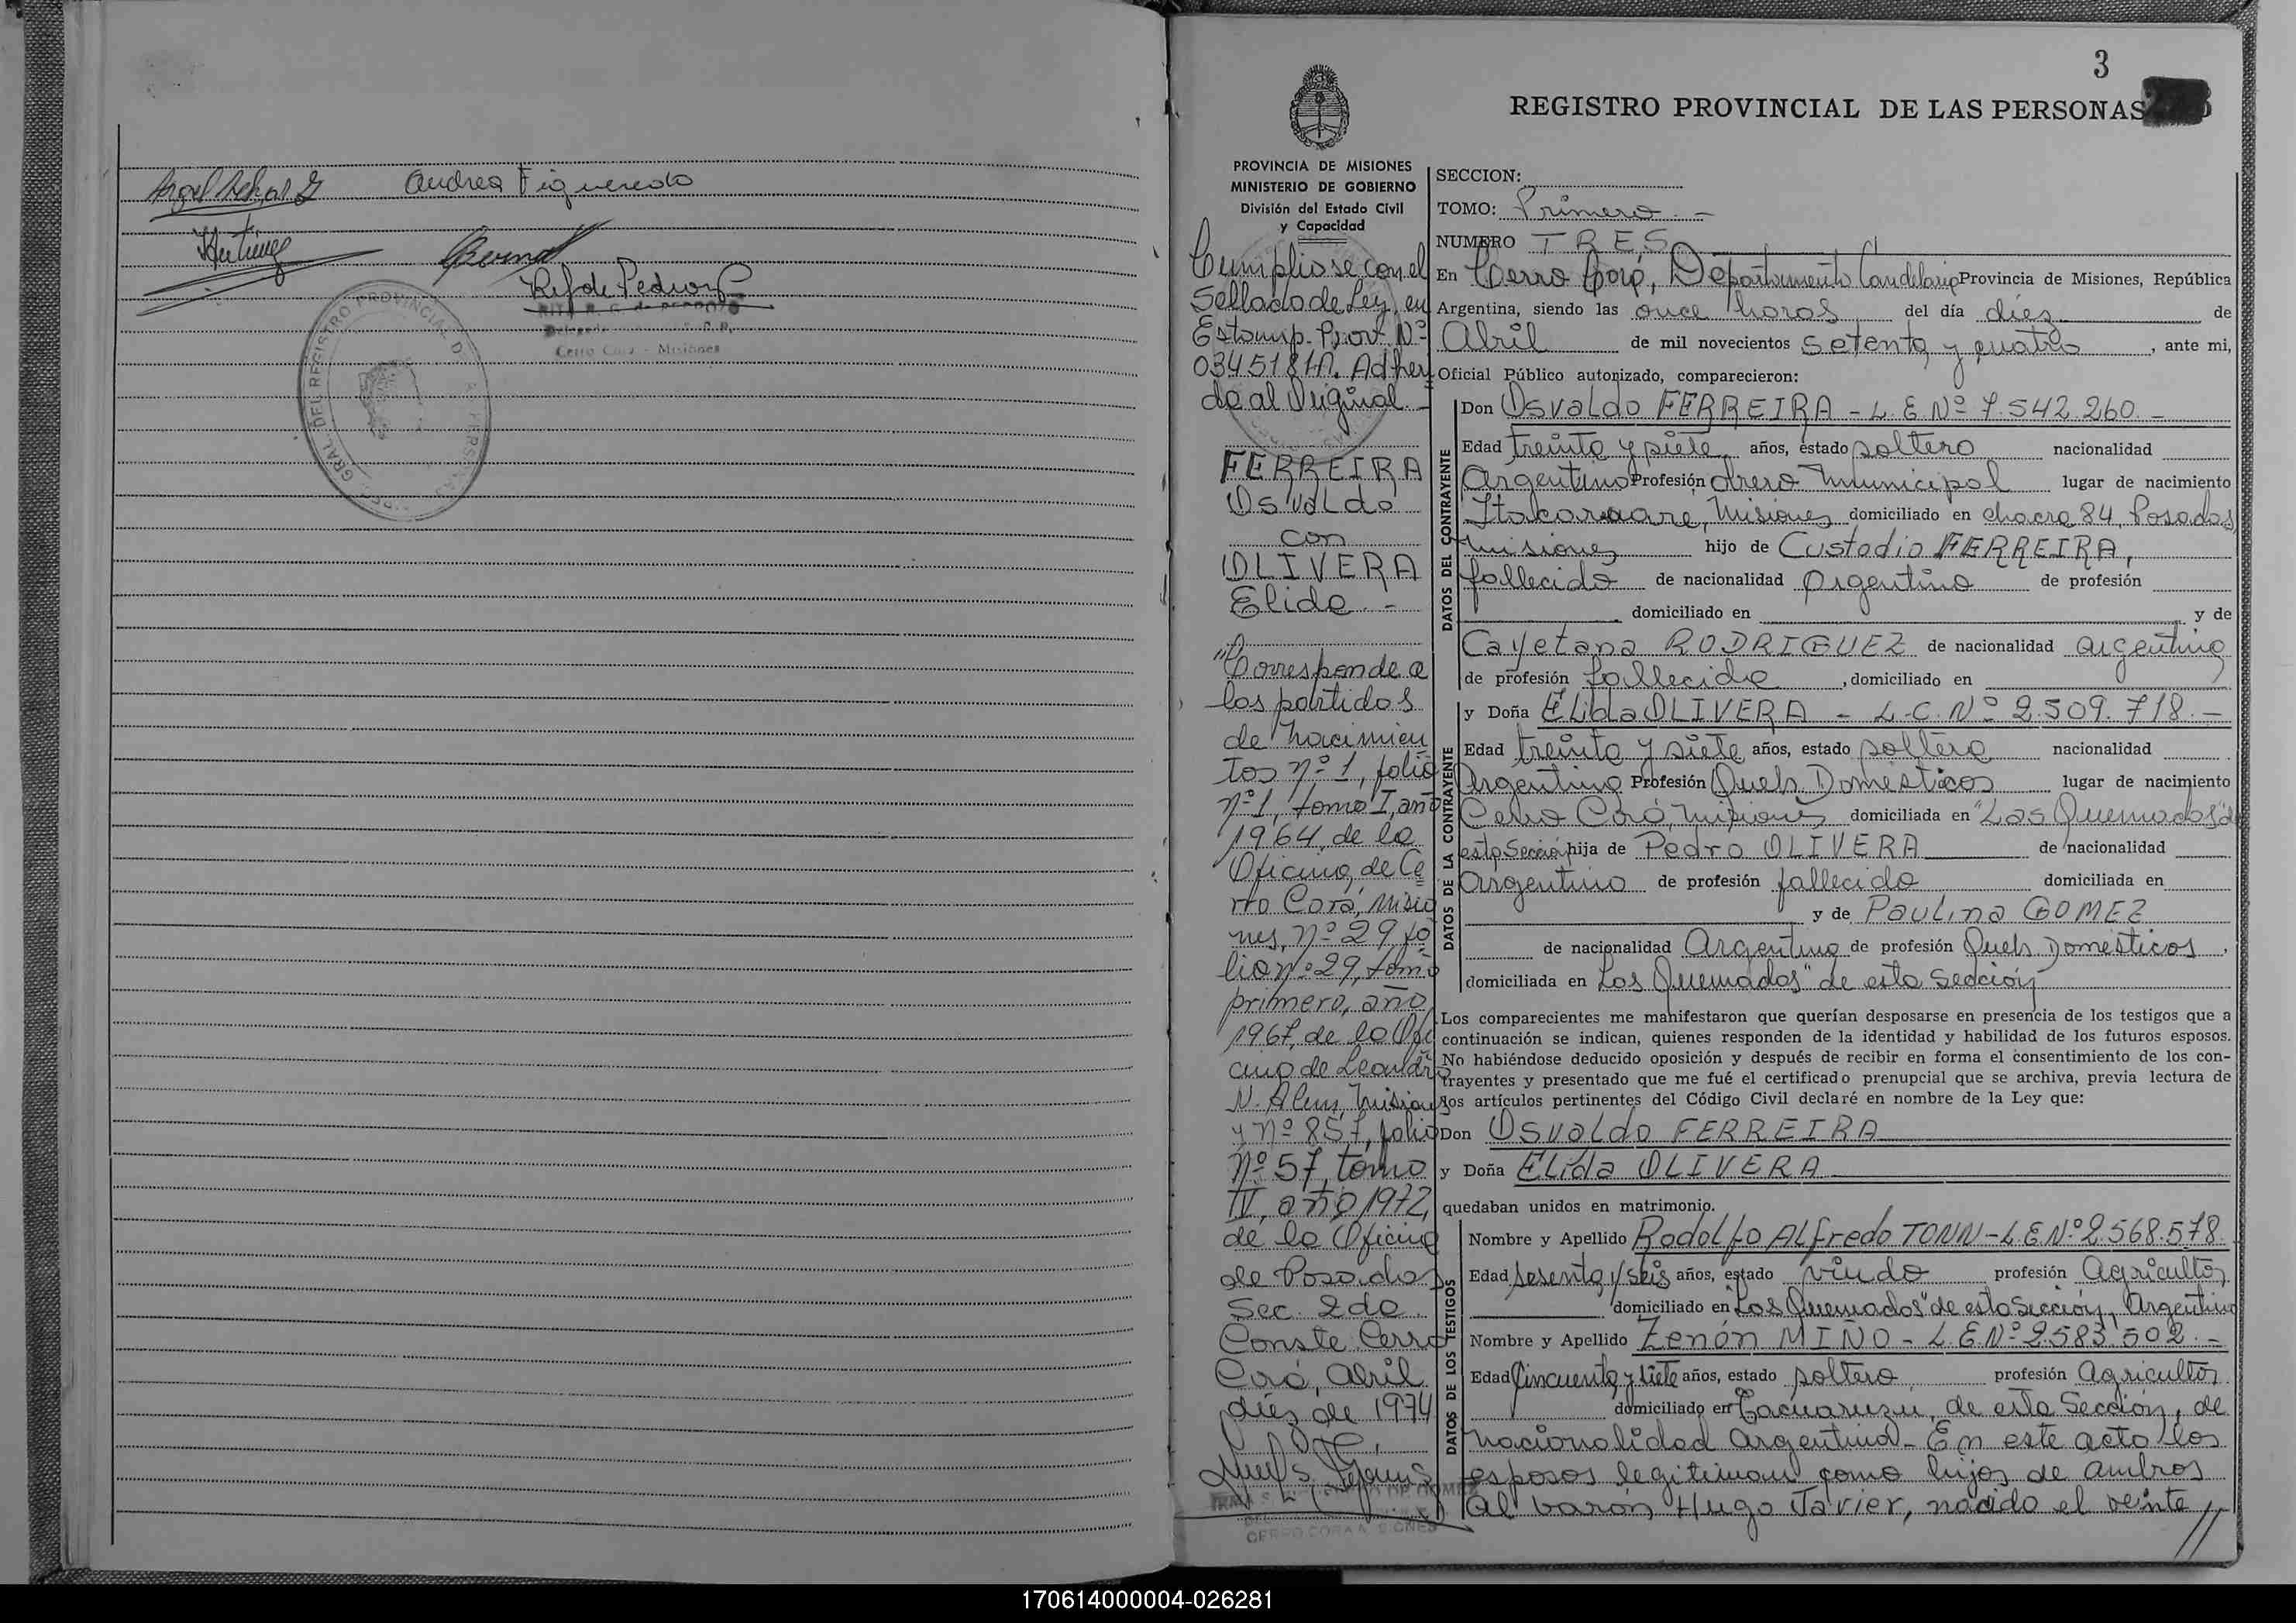 Andrea Figueredo
Cerro Corá - Misiones
3
REGISTRO PROVINCIAL DE LAS PERSONAS
PROVINCIA DE MISIONES
MINISTERIO DE GOBIERNO
División del Estado Civil
y Capacidad
Cumpliose con el
Sellado de Ley, en
Estamp. Prov. Nº
Adheri
do al Original -
FERREIRA
Osvaldo
con
OLIVERA
Elida. -
"Corresponde a
las partidas
de nacimien
tos nº 1, folio
nº 1, tomo I, año
1964, de la
Oficina de Ce
rro Corá, Misio
nes, nº 29 fo
lio nº 29, tomo
primero, año
1967, de la Ofi
cina de Leandro
N. Alem, Misiones
y nº 857, folio
nº 57, tomo
IV, año 1972,
de la Oficina
de Posadas
Sec. 2da.
Conste. Cerro
Corá, Abril
diez de 1974
SECCION:
TOMO: Primero. -
NUMERO TRES
En Cerro Corá, Departamento Candelaria Provincia de Misiones, República
Argentina, siendo las once horas del día diez de
Abril de mil novecientos setenta y cuatro, ante mi,
Oficial Público autorizado, comparecieron:
DATOS DEL CONTRAYENTE
Don Osvaldo FERREIRA - L.E Nº 7.542.260. -
Edad treinta y siete años, estado soltero nacionalidad
Argentino Profesión obrero municipal lugar de nacimiento
Itacaruare, Misiones domiciliado en chacra 84, Posadas,
Misiones hijo de Custodio FERREIRA,
fallecido de nacionalidad Argentino de profesión
domiciliado en y de
Cayetana RODRIGUEZ de nacionalidad argentina
de profesión fallecida, domiciliado en
DATOS DE LA CONTRAYENTE
y Doña Elida OLIVERA - L.C. Nº 2.509.718. -
Edad treinta y siete años, estado soltera nacionalidad
Argentina Profesión Queh. Domésticos lugar de nacimiento
Cerro Corá, Misiones domiciliada en "Los Quemados" de
esta Sección hija de Pedro OLIVERA de nacionalidad
argentino de profesión fallecido domiciliada en
y de Paulina GOMEZ
de nacionalidad Argentina de profesión Queh. Domésticos,
domiciliada en Los Quemados" de esta Sección
Los comparecientes me manifestaron que querían desposarse en presencia de los testigos que a
continuación se indican, quienes responden de la identidad y habilidad de los futuros esposos.
No habiéndose deducido oposición y después de recibir en forma el consentimiento de los con-
trayentes y presentado que me fué el certificado prenupcial que se archiva, previa lectura de
los artículos pertinentes del Código Civil declaré en nombre de la Ley que:
Don Osvaldo FERREIRA
y Doña Elida OLIVERA
quedaban unidos en matrimonio.
DATOS DE LOS TESTIGOS
Nombre y Apellido Rodolfo Alfredo TONN - L.E. Nº 2.568.578.
Edad sesenta y seis años, estado viudo profesión Agricultor
domiciliado en "Los Quemados" de esta Sección, Argentino
Nombre y Apellido Zenón MIÑO - L.E. Nº 2583.502. -
Edad Cincuenta y siete años, estado soltero profesión Agricultor
domiciliado en Tacuaruzu, de esta Sección, de
nacionalidad argentina - En este acto los
esposos legitiman como hijos de ambos
al varón Hugo Javier, nacido el veinte //
170614000004-026281